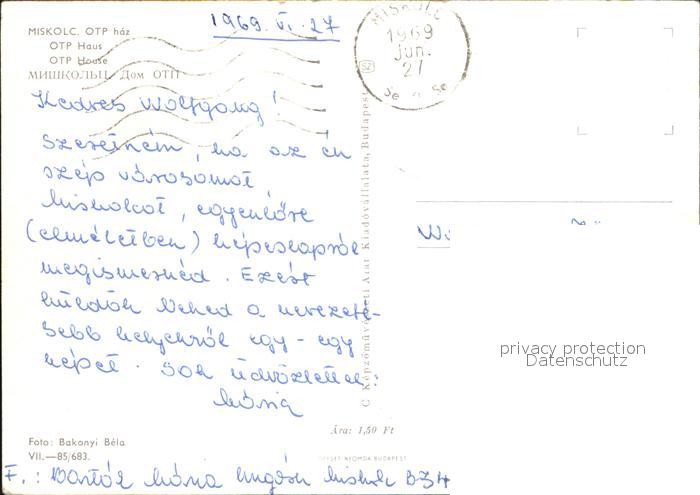 1969. VI. 27
MISKOLC, OTP ház
OTP Haus
OTP House
МИШКОЛЬЦ, Дом ОТП
MISKOLC
1969
Jun.
27
Kedves Wolfgang!
Szeretném, ha az én
szép városomat
Miskolcot, egyenlőre
(elméletben) képeslapról
megismernéd. Ezért
küldök Neked a nevezete-
sebb helyekről egy-egy
képet. Sok üdvözlettel:
Mária
Képzőművészeti Alap Kiadóvállalata, Budapest
Ára: 1,50 Ft
privacy protection
Datenschutz
Foto: Bakonyi Béla
VII.—85/683.
OFFSET-NYOMDA BUDAPEST
F.: Mária Miskolc